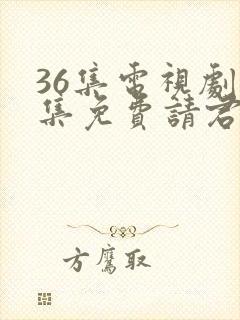 36集電視劇
集免費請君
方鷹取